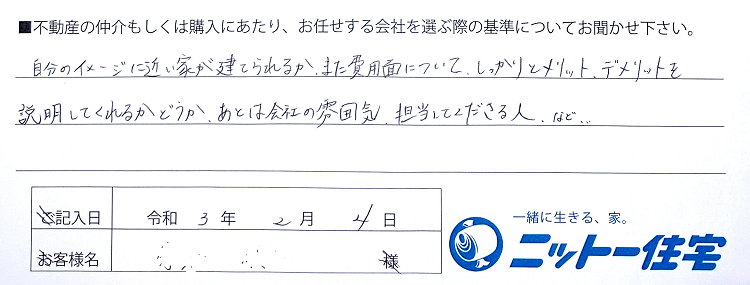 ■不動産の仲介もしくは購入にあたり、お任せする会社を選ぶ際の基準についてお聞かせ下さい。
自分のイメージに近い家が建てられるか、また費用面について、しっかりとメリット、デメリットを
説明してくれるかどうか、あとは会社の雰囲気、担当してくださる人、など…
ご記入日 令和 3 年 2 月 4 日
お客様名 様
一緒に生きる、家。
ニットー住宅